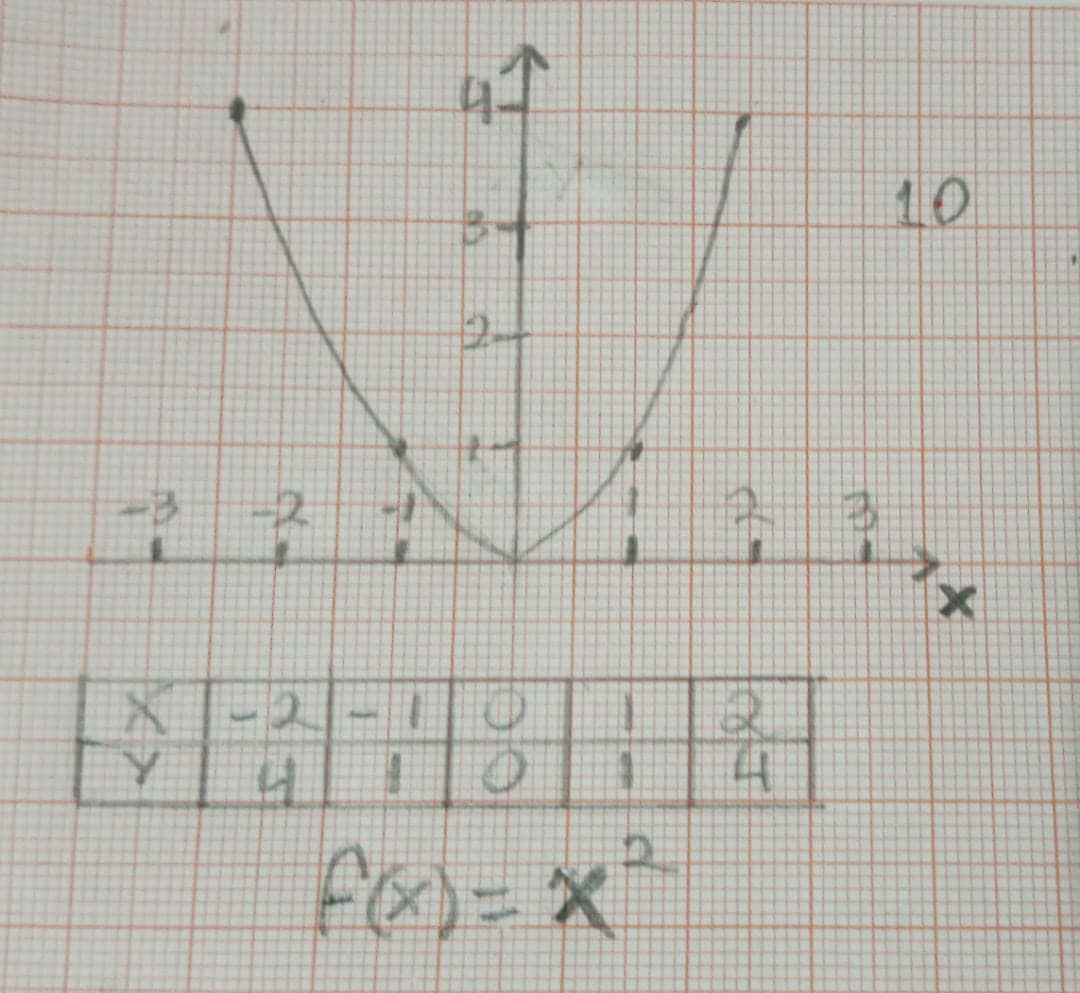 4
3
10
2
1
-3 -2 -1 1 2 3
x
X -2 -1 0 1 2
Y 4 1 0 1 4
f(x) = x²